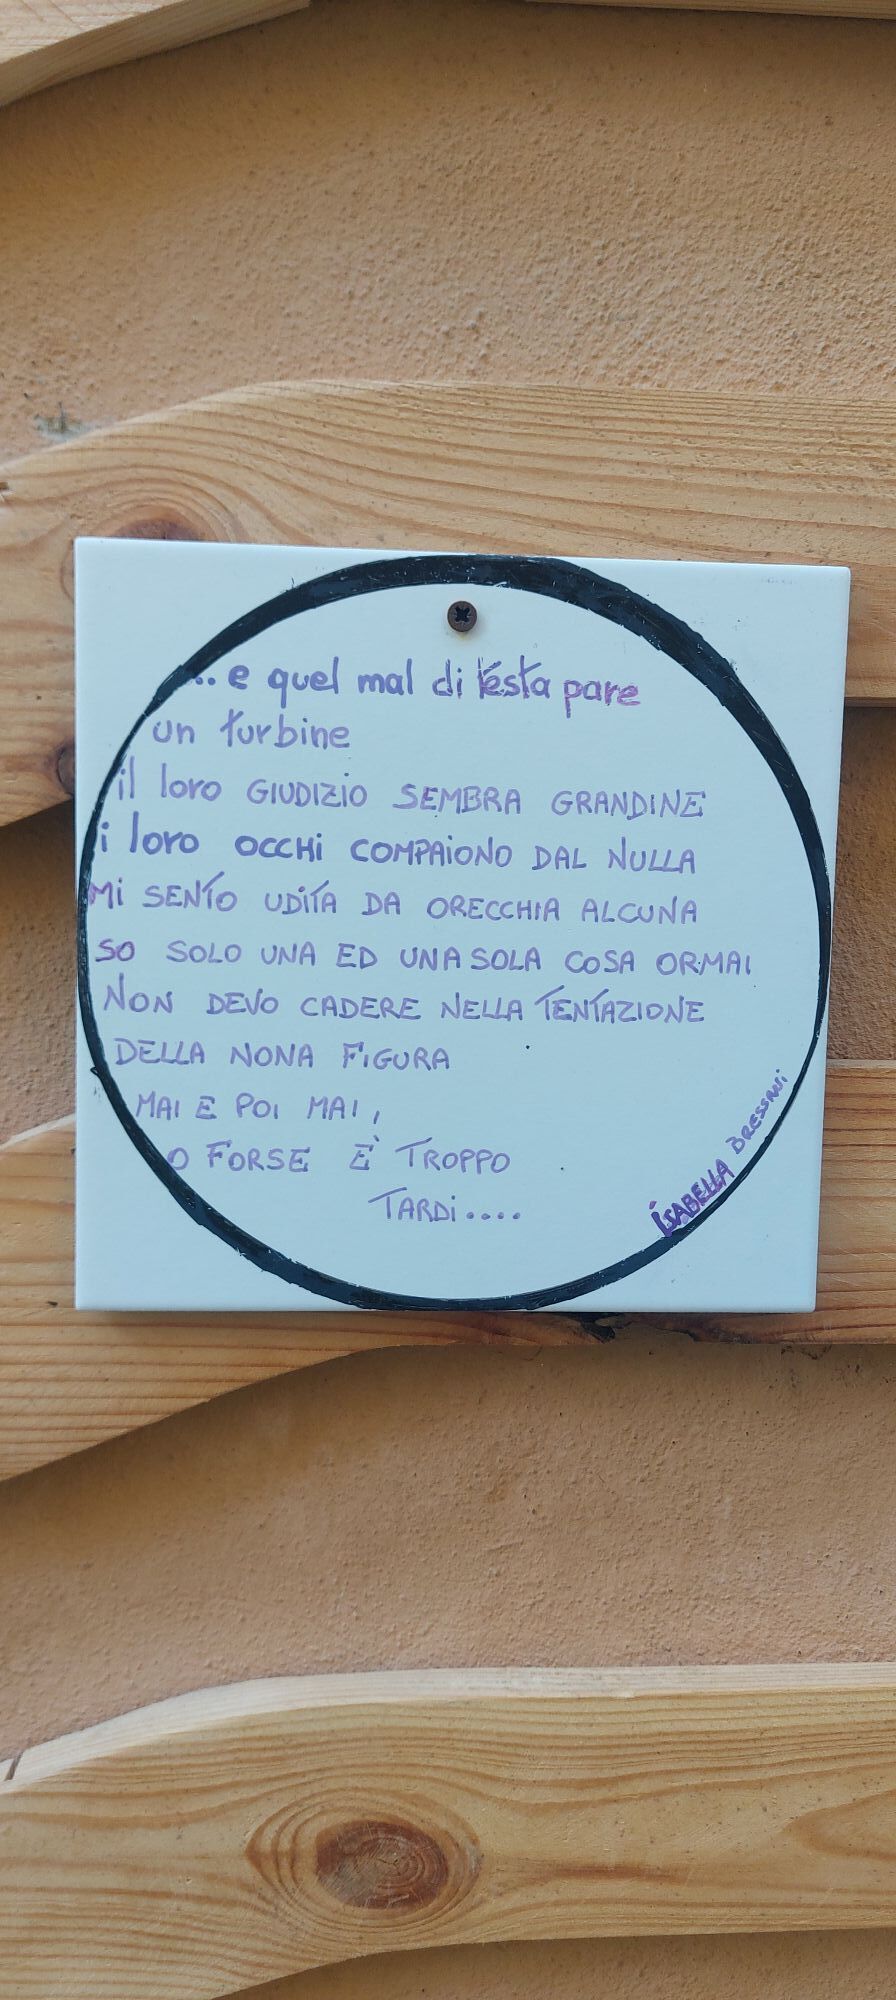 ... e quel mal di testa pare
un turbine
il loro GIUDIZIO SEMBRA GRANDINE
i loro OCCHI COMPAIONO DAL NULLA
Mi SENTO UDITA DA ORECCHIA ALCUNA
SO SOLO UNA ED UNA SOLA COSA ORMAI
NON DEVO CADERE NELLA TENTAZIONE
DELLA NONA FIGURA
MAI E POI MAI,
O FORSE È TROPPO
TARDI....
ISABELLA BRESSANI